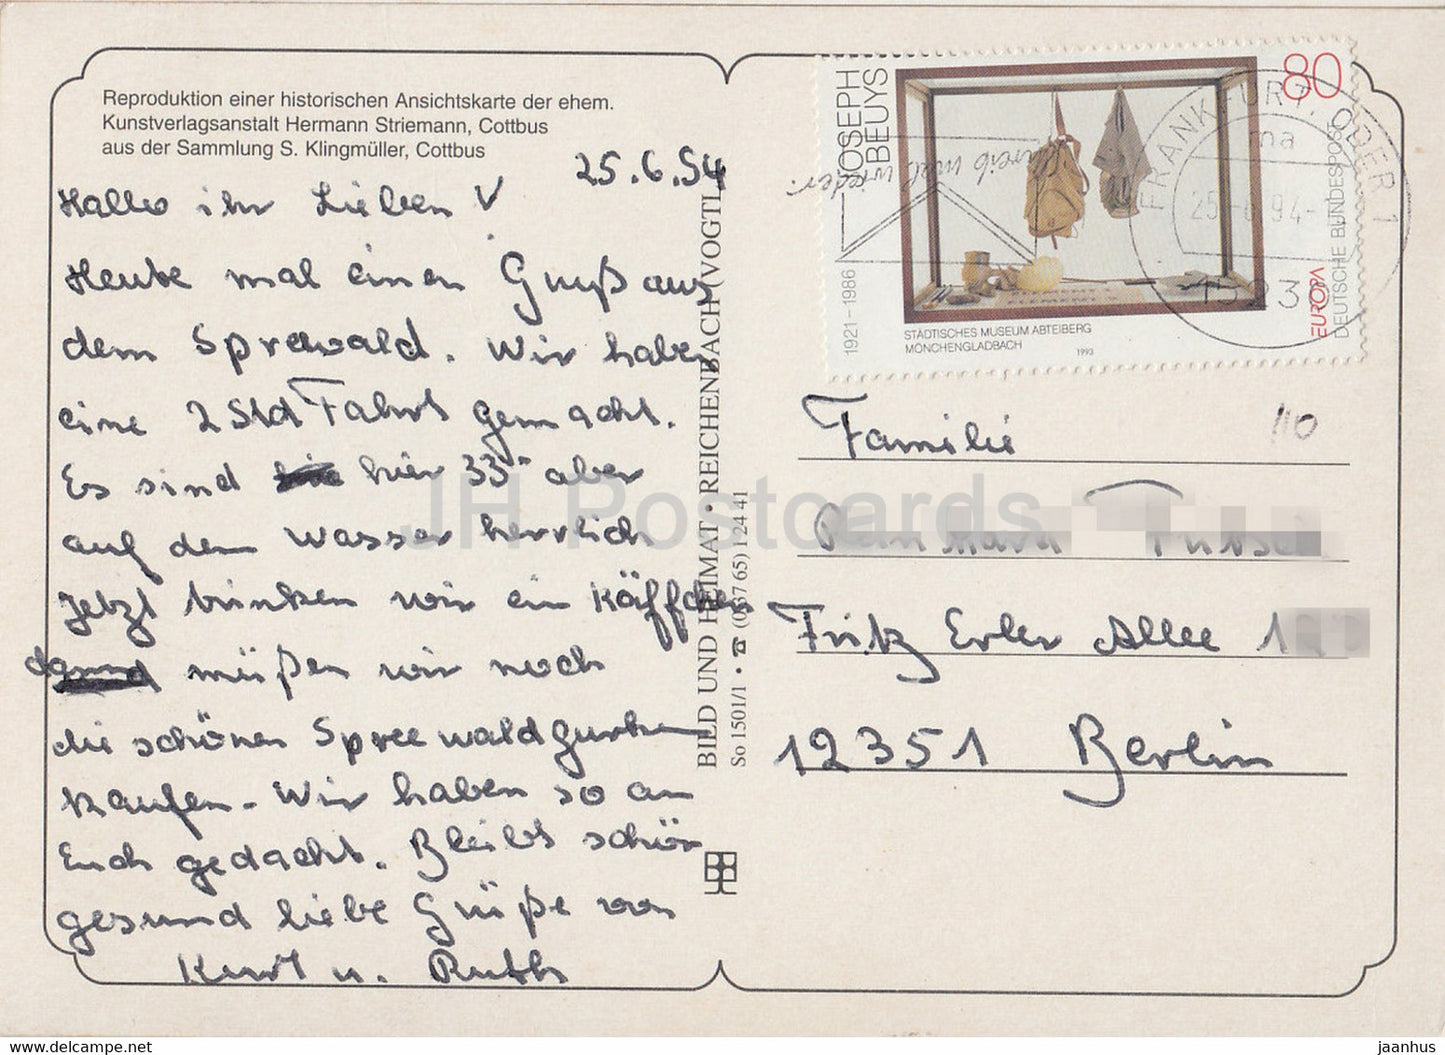 Reproduktion einer historischen Ansichtskarte der ehem.
Kunstverlagsanstalt Hermann Striemann, Cottbus
aus der Sammlung S. Klingmüller, Cottbus
25.6.94
Hallo ihr Lieben V
Heute mal einen Gruß aus
dem Sprewald. Wir haben
eine 2 Std Fahrt gemacht.
Es sind hier 33° aber
auf dem Wasser herrlich
Jetzt trinken wir ein Käffchen
dann müßen wir noch
die schönen Spreewaldgurken
kaufen. Wir haben so an
Euch gedacht. Bleibt schön
gesund liebe Grüße von
Kurt u. Ruth
BILD UND HEIMAT • REICHENBACH (VOGTL
So 1501/1 • ☎ (03765) 1 24 41
JOSEPH
BEUYS
1921–1986
80
EUROPA
DEUTSCHE BUNDESPOST
STÄDTISCHES MUSEUM ABTEIBERG
MÖNCHENGLADBACH
1993
Schreib mal wieder.
FRANKFURT, ODER 1
ma
25.-6.94-
15230
110
Familie
Fritz Erler Allee 1
12351 Berlin
JH Postcards
https://jhpostcards.com
jaanhus